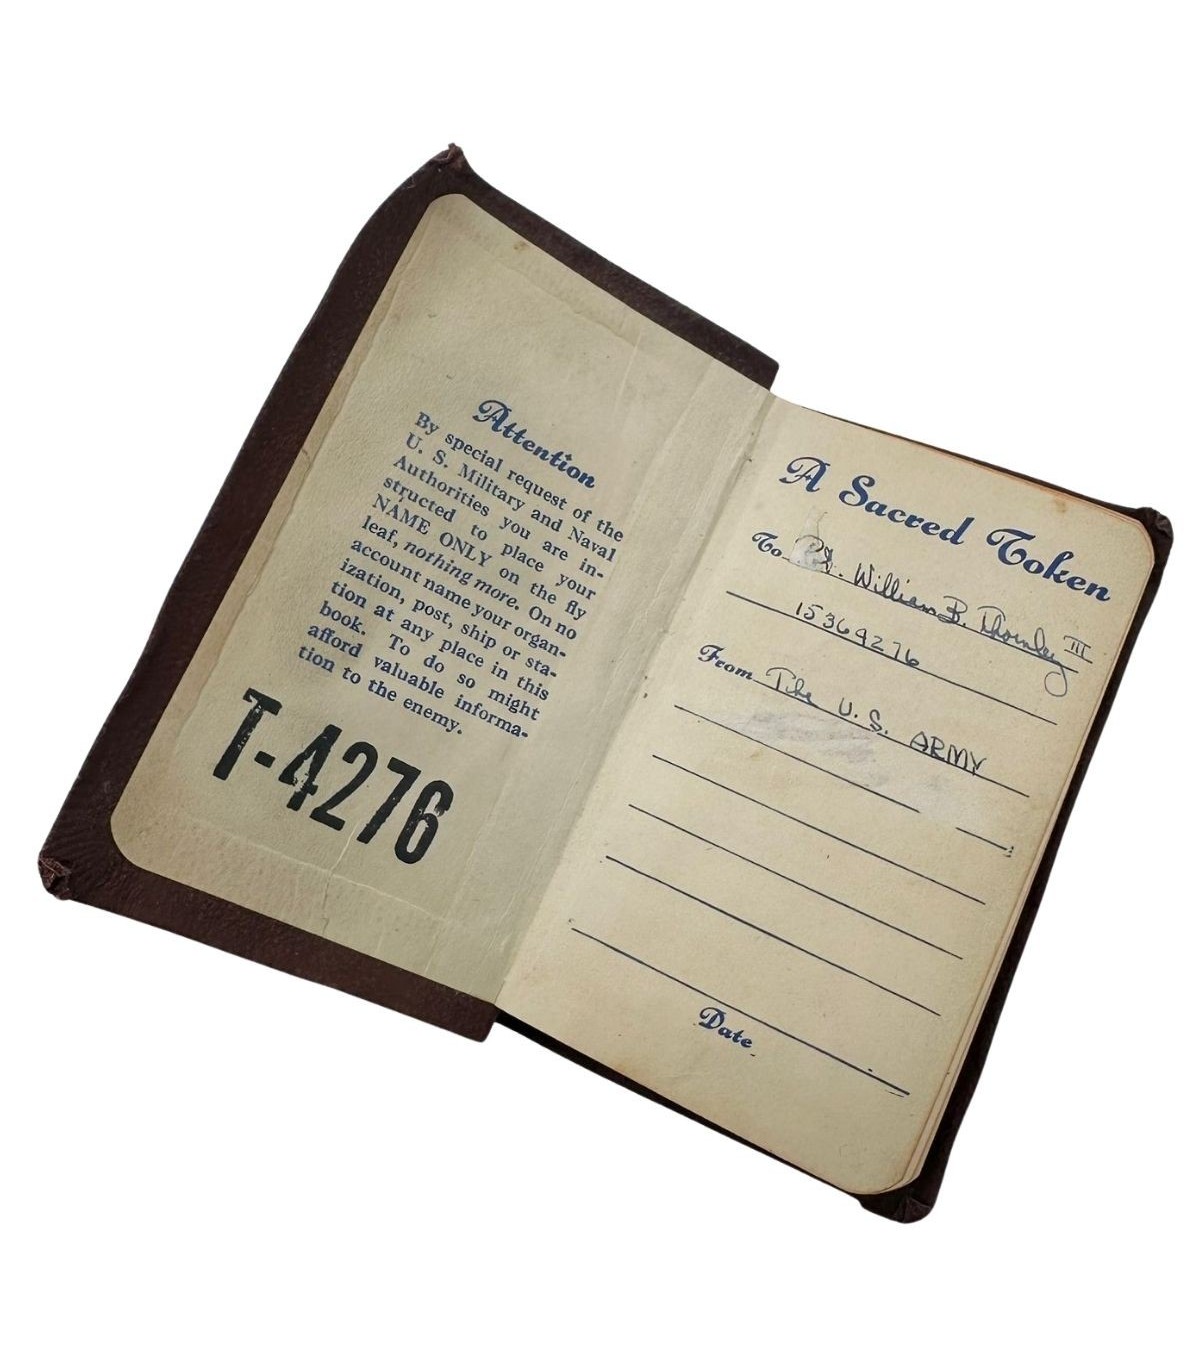 Attention
By special request of the
U. S. Military and Naval
Authorities you are in-
structed to place your
NAME ONLY on the fly
leaf, nothing more. On no
account name your organ-
ization, post, ship or sta-
tion at any place in this
book. To do so might
afford valuable informa-
tion to the enemy.
T-4276
A Sacred Token
To William B. Thornley III
15369276
From The U. S. ARMY
Date